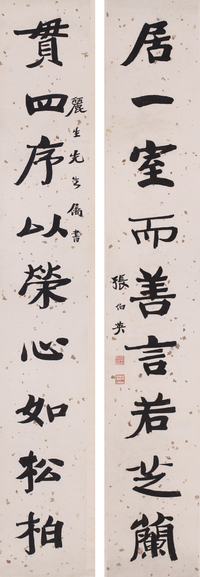 居一室而善言若芝蘭
張伯英
貫四序以榮心如松柏
麗生先生屬書